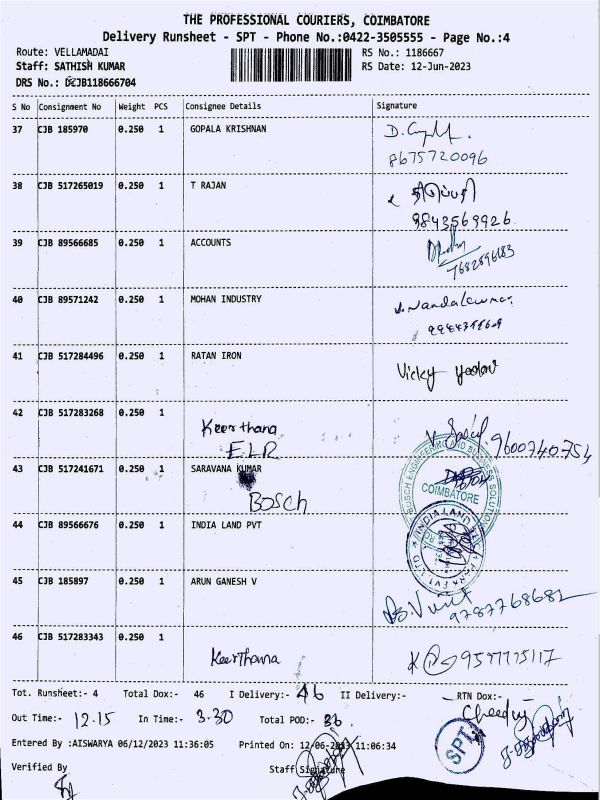 THE PROFESSIONAL COURIERS, COIMBATORE
Delivery Runsheet - SPT - Phone No.:0422-3505555 - Page No.:4
Route: VELLAMADAI
RS No.: 1186667
Staff: SATHISH KUMAR
RS Date: 12-Jun-2023
DRS No.: DCJB118666704
S No Consignment No Weight PCS Consignee Details Signature
37 CJB 185970 0.250 1 GOPALA KRISHNAN
8675720096
38 CJB 517265019 0.250 1 T RAJAN
9843569926
39 CJB 89566685 0.250 1 ACCOUNTS
40 CJB 89571242 0.250 1 MOHAN INDUSTRY
41 CJB 517284496 0.250 1 RATAN IRON Vicky Yadav
42 CJB 517283268 0.250 1
Keerthana
ELR
9600740754
43 CJB 517241671 0.250 1 SARAVANA KUMAR
BOSCH
BOSCH ENGINEERING AND BUSINESS SOLUTION
COIMBATORE
44 CJB 89566676 0.250 1 INDIA LAND PVT
INDIA LAND PARK PVT LTD
45 CJB 185897 0.250 1 ARUN GANESH V
9787768682
46 CJB 517283343 0.250 1
Keerthana
Tot. Runsheet:- 4 Total Dox:- 46 I Delivery:- 46 II Delivery:- RTN Dox:-
Out Time:- 12.15 In Time:- 3.30 Total POD:- 36
SPT
Entered By :AISWARYA 06/12/2023 11:36:05 Printed On: 12-06-2023 11:06:34
Verified By Staff Signature